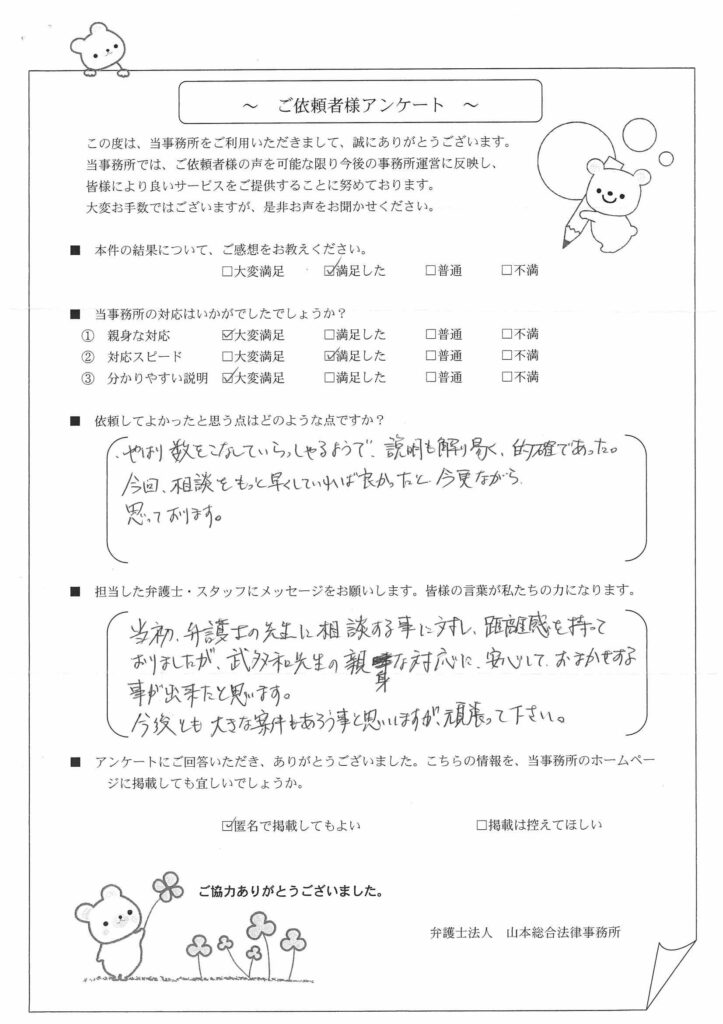 ～ ご依頼者様アンケート ～
この度は、当事務所をご利用いただきまして、誠にありがとうございます。
当事務所では、ご依頼者様の声を可能な限り今後の事務所運営に反映し、
皆様により良いサービスをご提供することに努めております。
大変お手数ではございますが、是非お声をお聞かせください。
■ 本件の結果について、ご感想をお教えください。
□大変満足 ☑満足した □普通 □不満
■ 当事務所の対応はいかがでしたでしょうか？
① 親身な対応 ☑大変満足 □満足した □普通 □不満
② 対応スピード □大変満足 ☑満足した □普通 □不満
③ 分かりやすい説明 ☑大変満足 □満足した □普通 □不満
■ 依頼してよかったと思う点はどのような点ですか？
やはり数をこなしていらっしゃるようで、説明も解り易く、的確であった。
今回、相談をもっと早くしていれば良かったと今更ながら
思っております。
■ 担当した弁護士・スタッフにメッセージをお願いします。皆様の言葉が私たちの力になります。
当初、弁護士の先生に相談する事に対し、距離感を持って
おりましたが、武多和先生の親身な対応に、安心して、おまかせする
事が出来たと思います。
今後とも大きな案件もあろう事と思いますが、頑張って下さい。
■ アンケートにご回答いただき、ありがとうございました。こちらの情報を、当事務所のホームペー
ジに掲載しても宜しいでしょうか。
☑匿名で掲載してもよい □掲載は控えてほしい
ご協力ありがとうございました。
弁護士法人 山本総合法律事務所